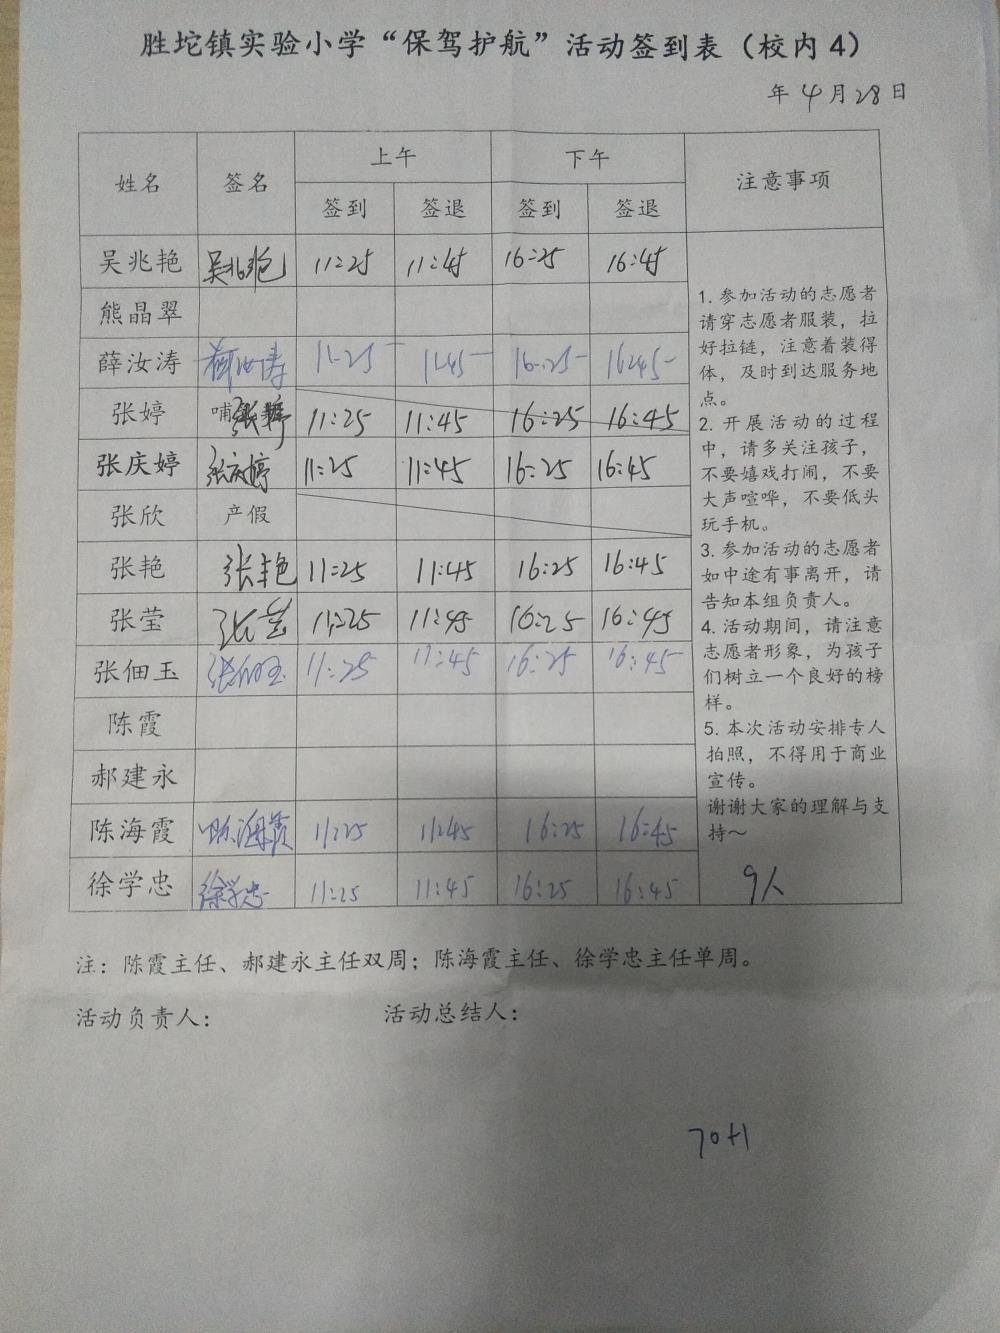 胜坨镇实验小学“保驾护航”活动签到表（校内4）
年 4月28日
姓名 签名 上午 下午 注意事项
签到 签退 签到 签退
吴兆艳 吴兆艳 11:25 11:45 16:25 16:45
熊晶翠
薛汝涛 薛汝涛 11:25 11:45 16:25 16:45
张婷 哺 张婷 11:25 11:45 16:25 16:45
张庆婷 张庆婷 11:25 11:45 16:25 16:45
张欣 产假
张艳 张艳 11:25 11:45 16:25 16:45
张莹 张莹 11:25 11:45 16:25 16:45
张佃玉 张佃玉 11:25 11:45 16:25 16:45
陈霞
郝建永
陈海霞 陈海霞 11:25 11:45 16:25 16:45
徐学忠 徐学忠 11:25 11:45 16:25 16:45
1. 参加活动的志愿者
请穿志愿者服装，拉
好拉链，注意着装得
体，及时到达服务地
点。
2. 开展活动的过程
中，请多关注孩子，
不要嬉戏打闹，不要
大声喧哗，不要低头
玩手机。
3. 参加活动的志愿者
如中途有事离开，请
告知本组负责人。
4. 活动期间，请注意
志愿者形象，为孩子
们树立一个良好的榜
样。
5. 本次活动安排专人
拍照，不得用于商业
宣传。
谢谢大家的理解与支
持～
9人
注：陈霞主任、郝建永主任双周；陈海霞主任、徐学忠主任单周。
活动负责人： 活动总结人：
70+1